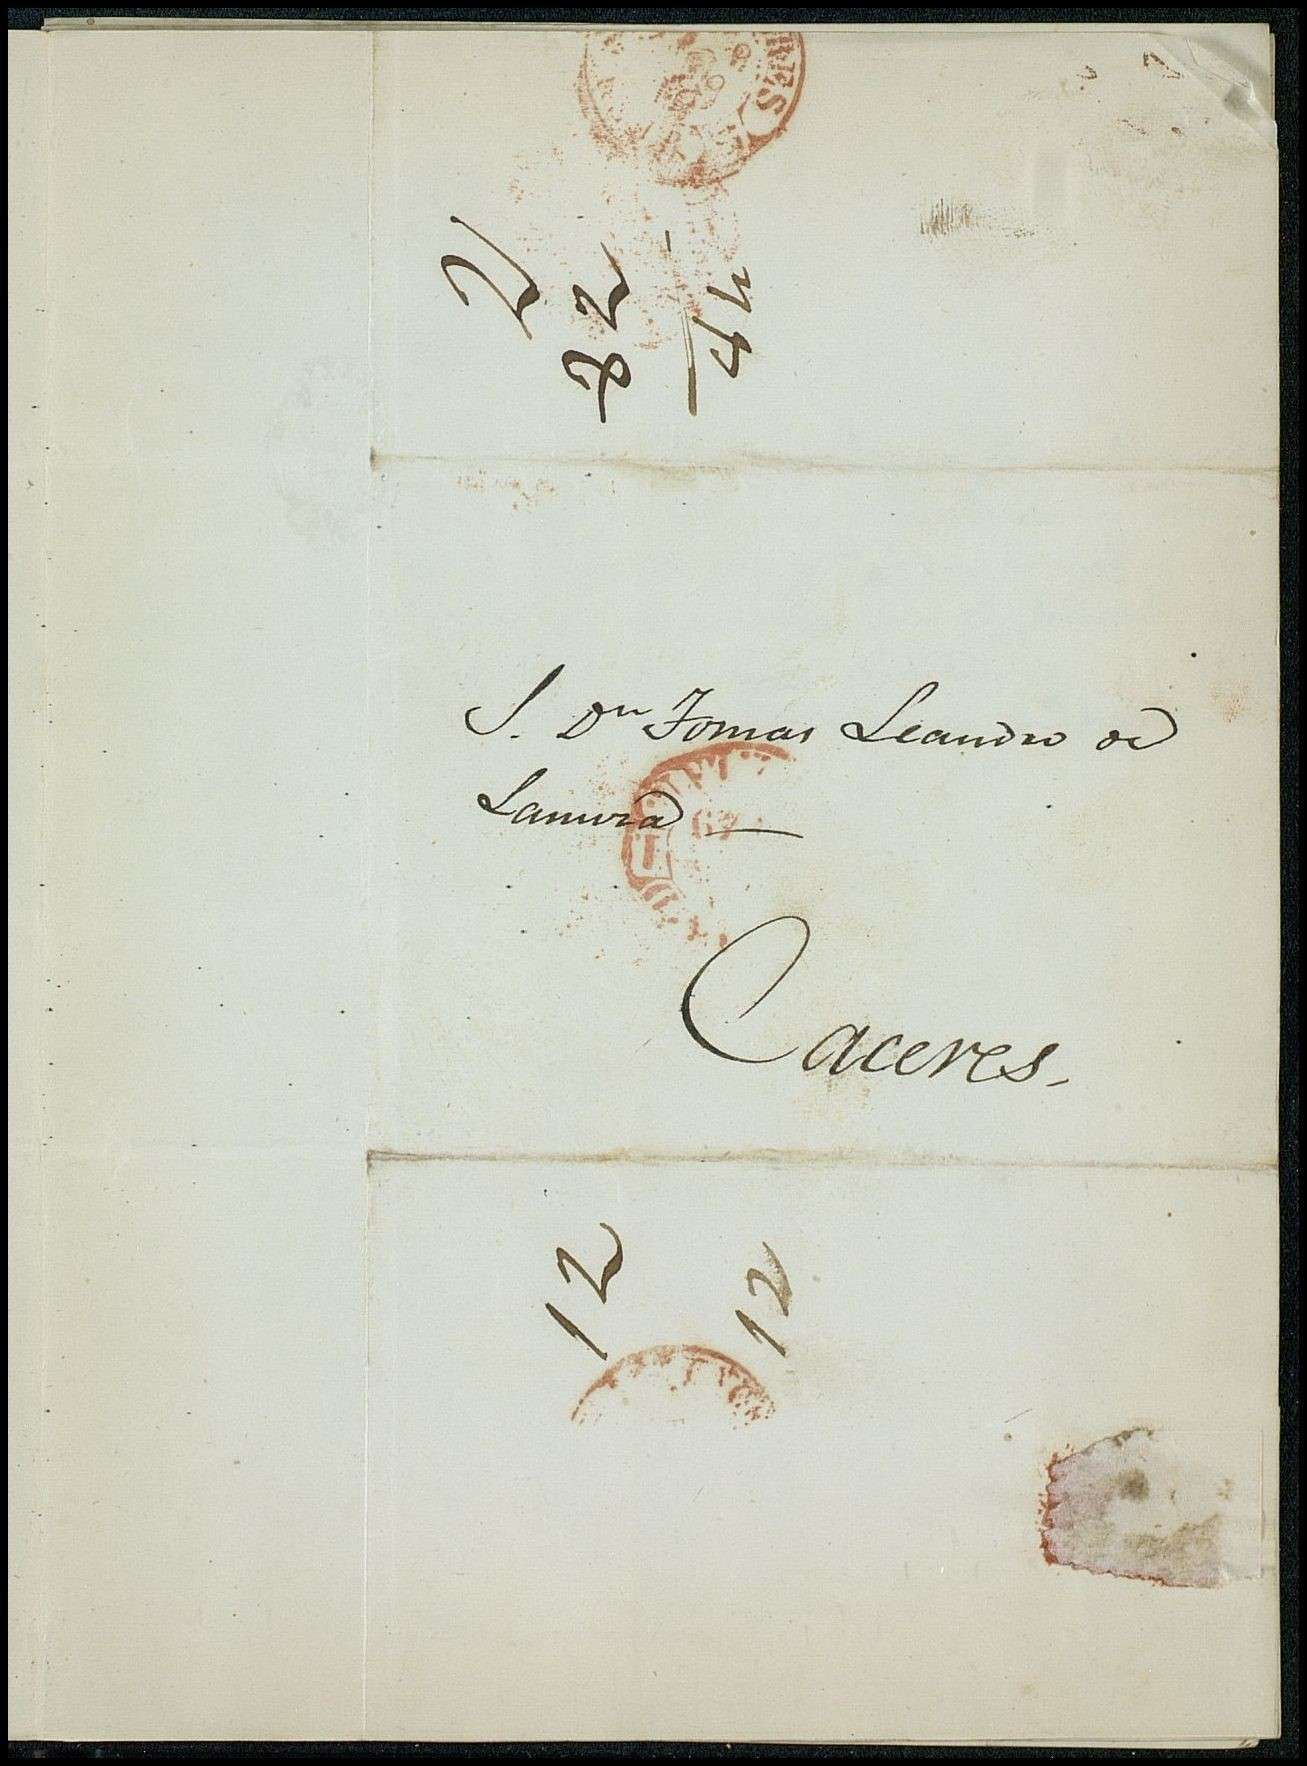 32
44
S. Dn Tomas Leandro de
Lanuza
Caceres.
12
12